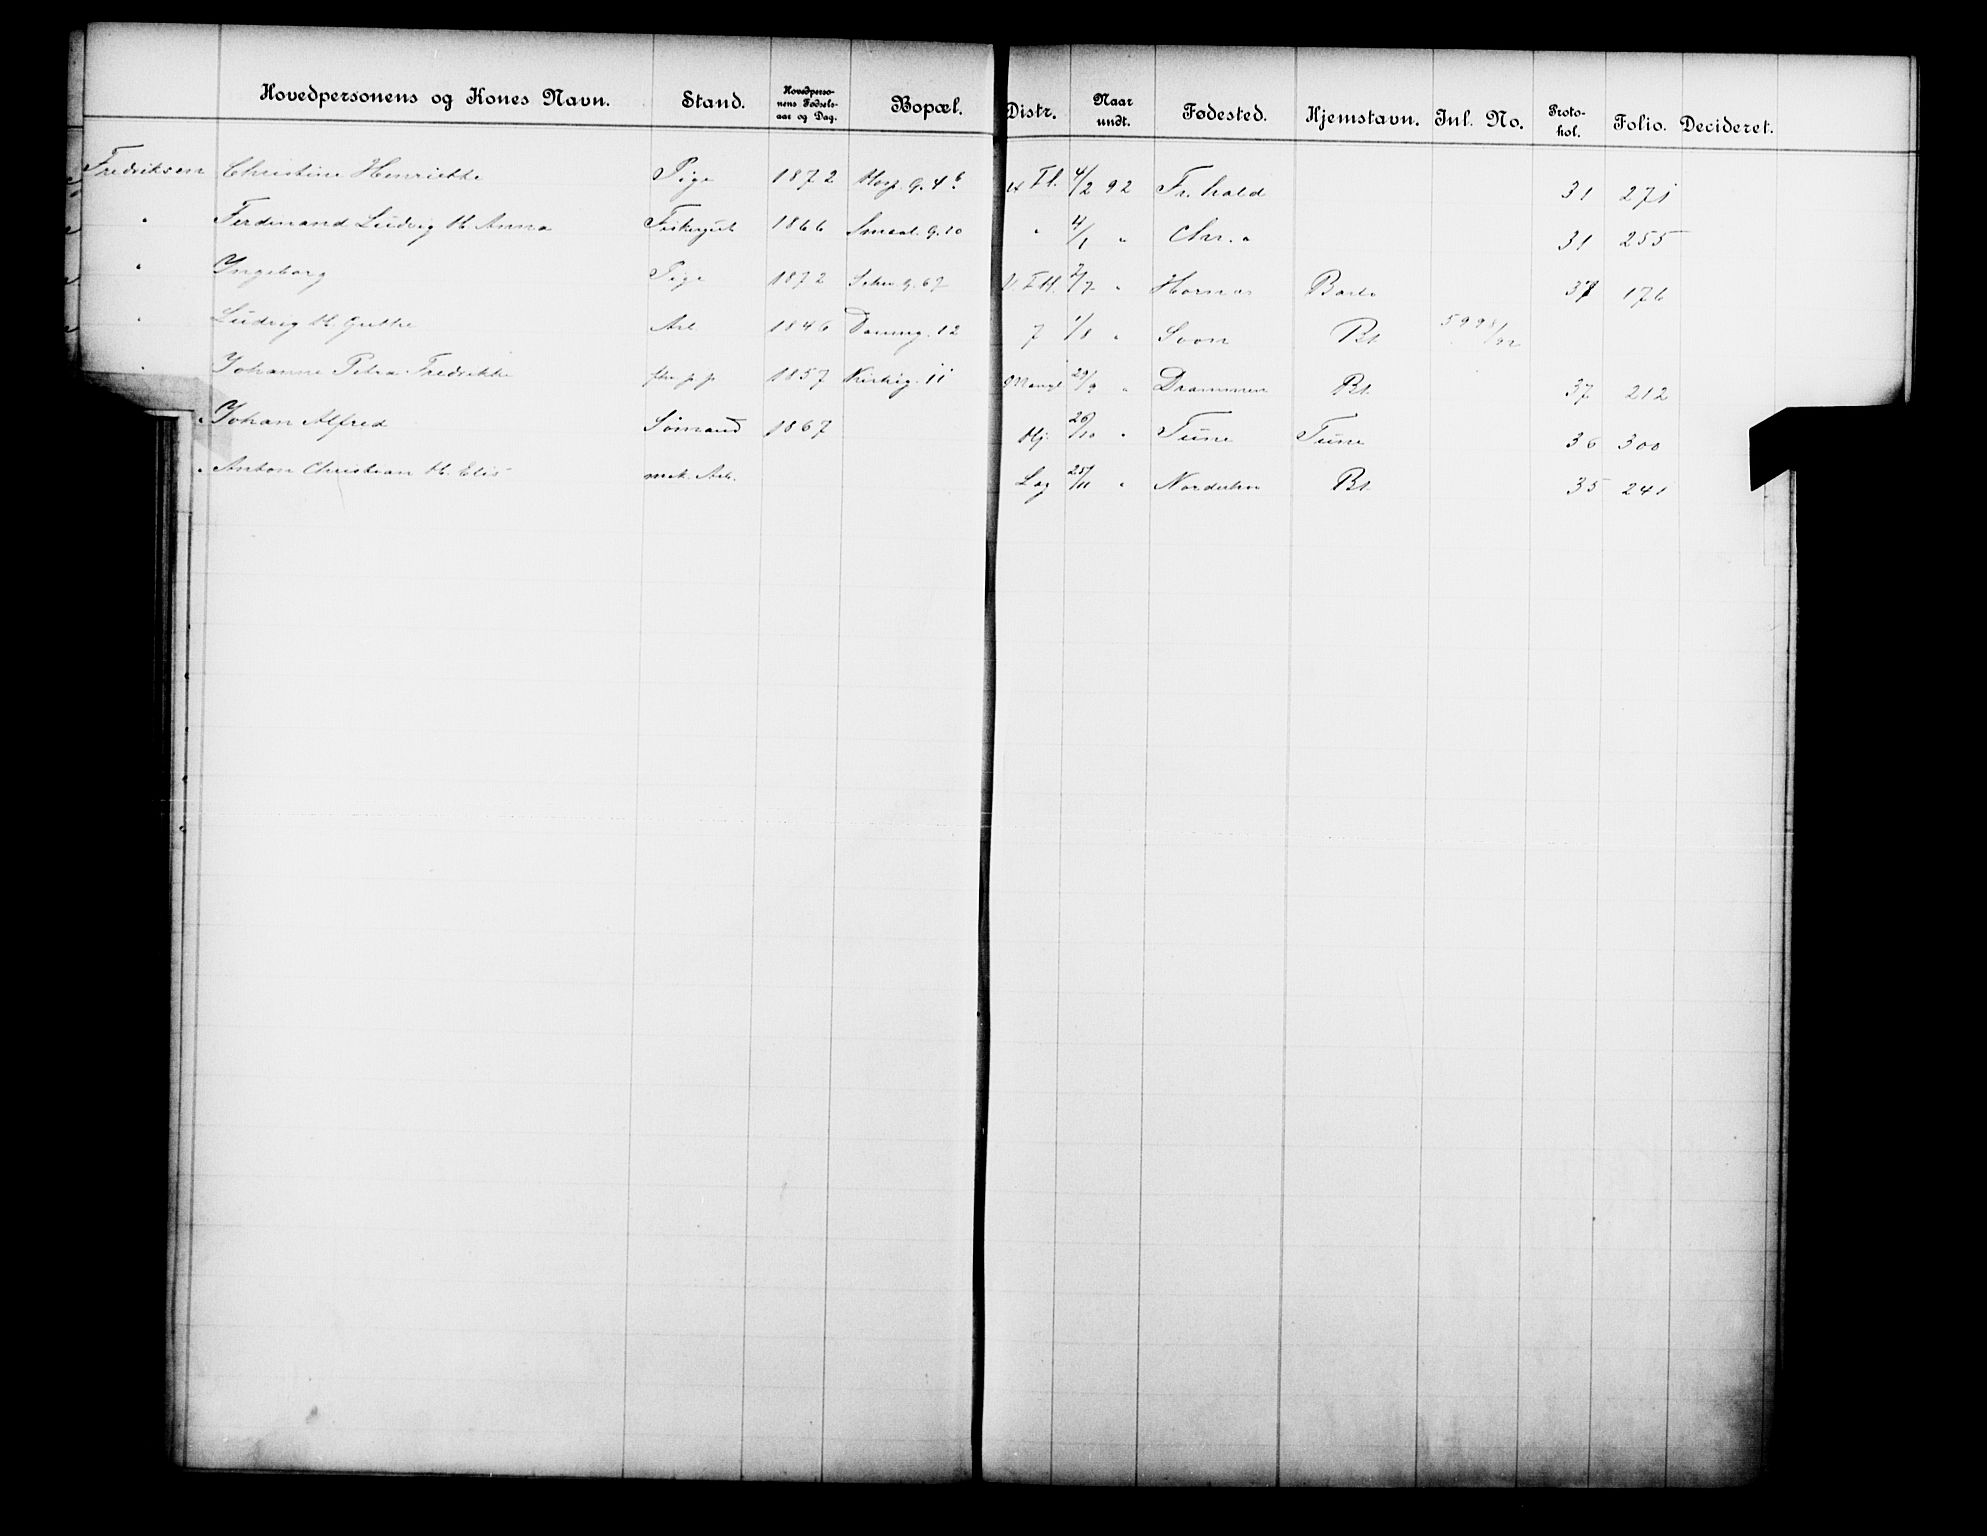 Hovedpersonens og Kones Navn. Stand. Hovedpersonens Fødselsaar og Dag. Bopæl. Distr. Naar undt. Fødested. Hjemstavn. Inl. No. Protohol. Folio. Decideret.
Fredriksen Christine Henriette Pige 1872 4/2 92 Fr.hald 31 271
" Ferdinand Ludvig H. Anna 1866 Smaal. g. 10 " 4/1 " Chr.a 31 255
" Ingeborg Pige 1872 Schu. g. 67 " Hornes 37 176
" Ludvig H. Arb 1846 12 7 1/8 " Soon Bt 5998/92
" Johanne Petra Fredrikke 1857 Kirkeg. 11 29/9 " Drammen Bt. 37 212
" Johan Alfred Sömand 1867 Hj. 26/10 " Tune Tune 36 300
" Anton Christian H. Elis mek. Arb. Lag 25/11 " Norderhov Bt 35 241